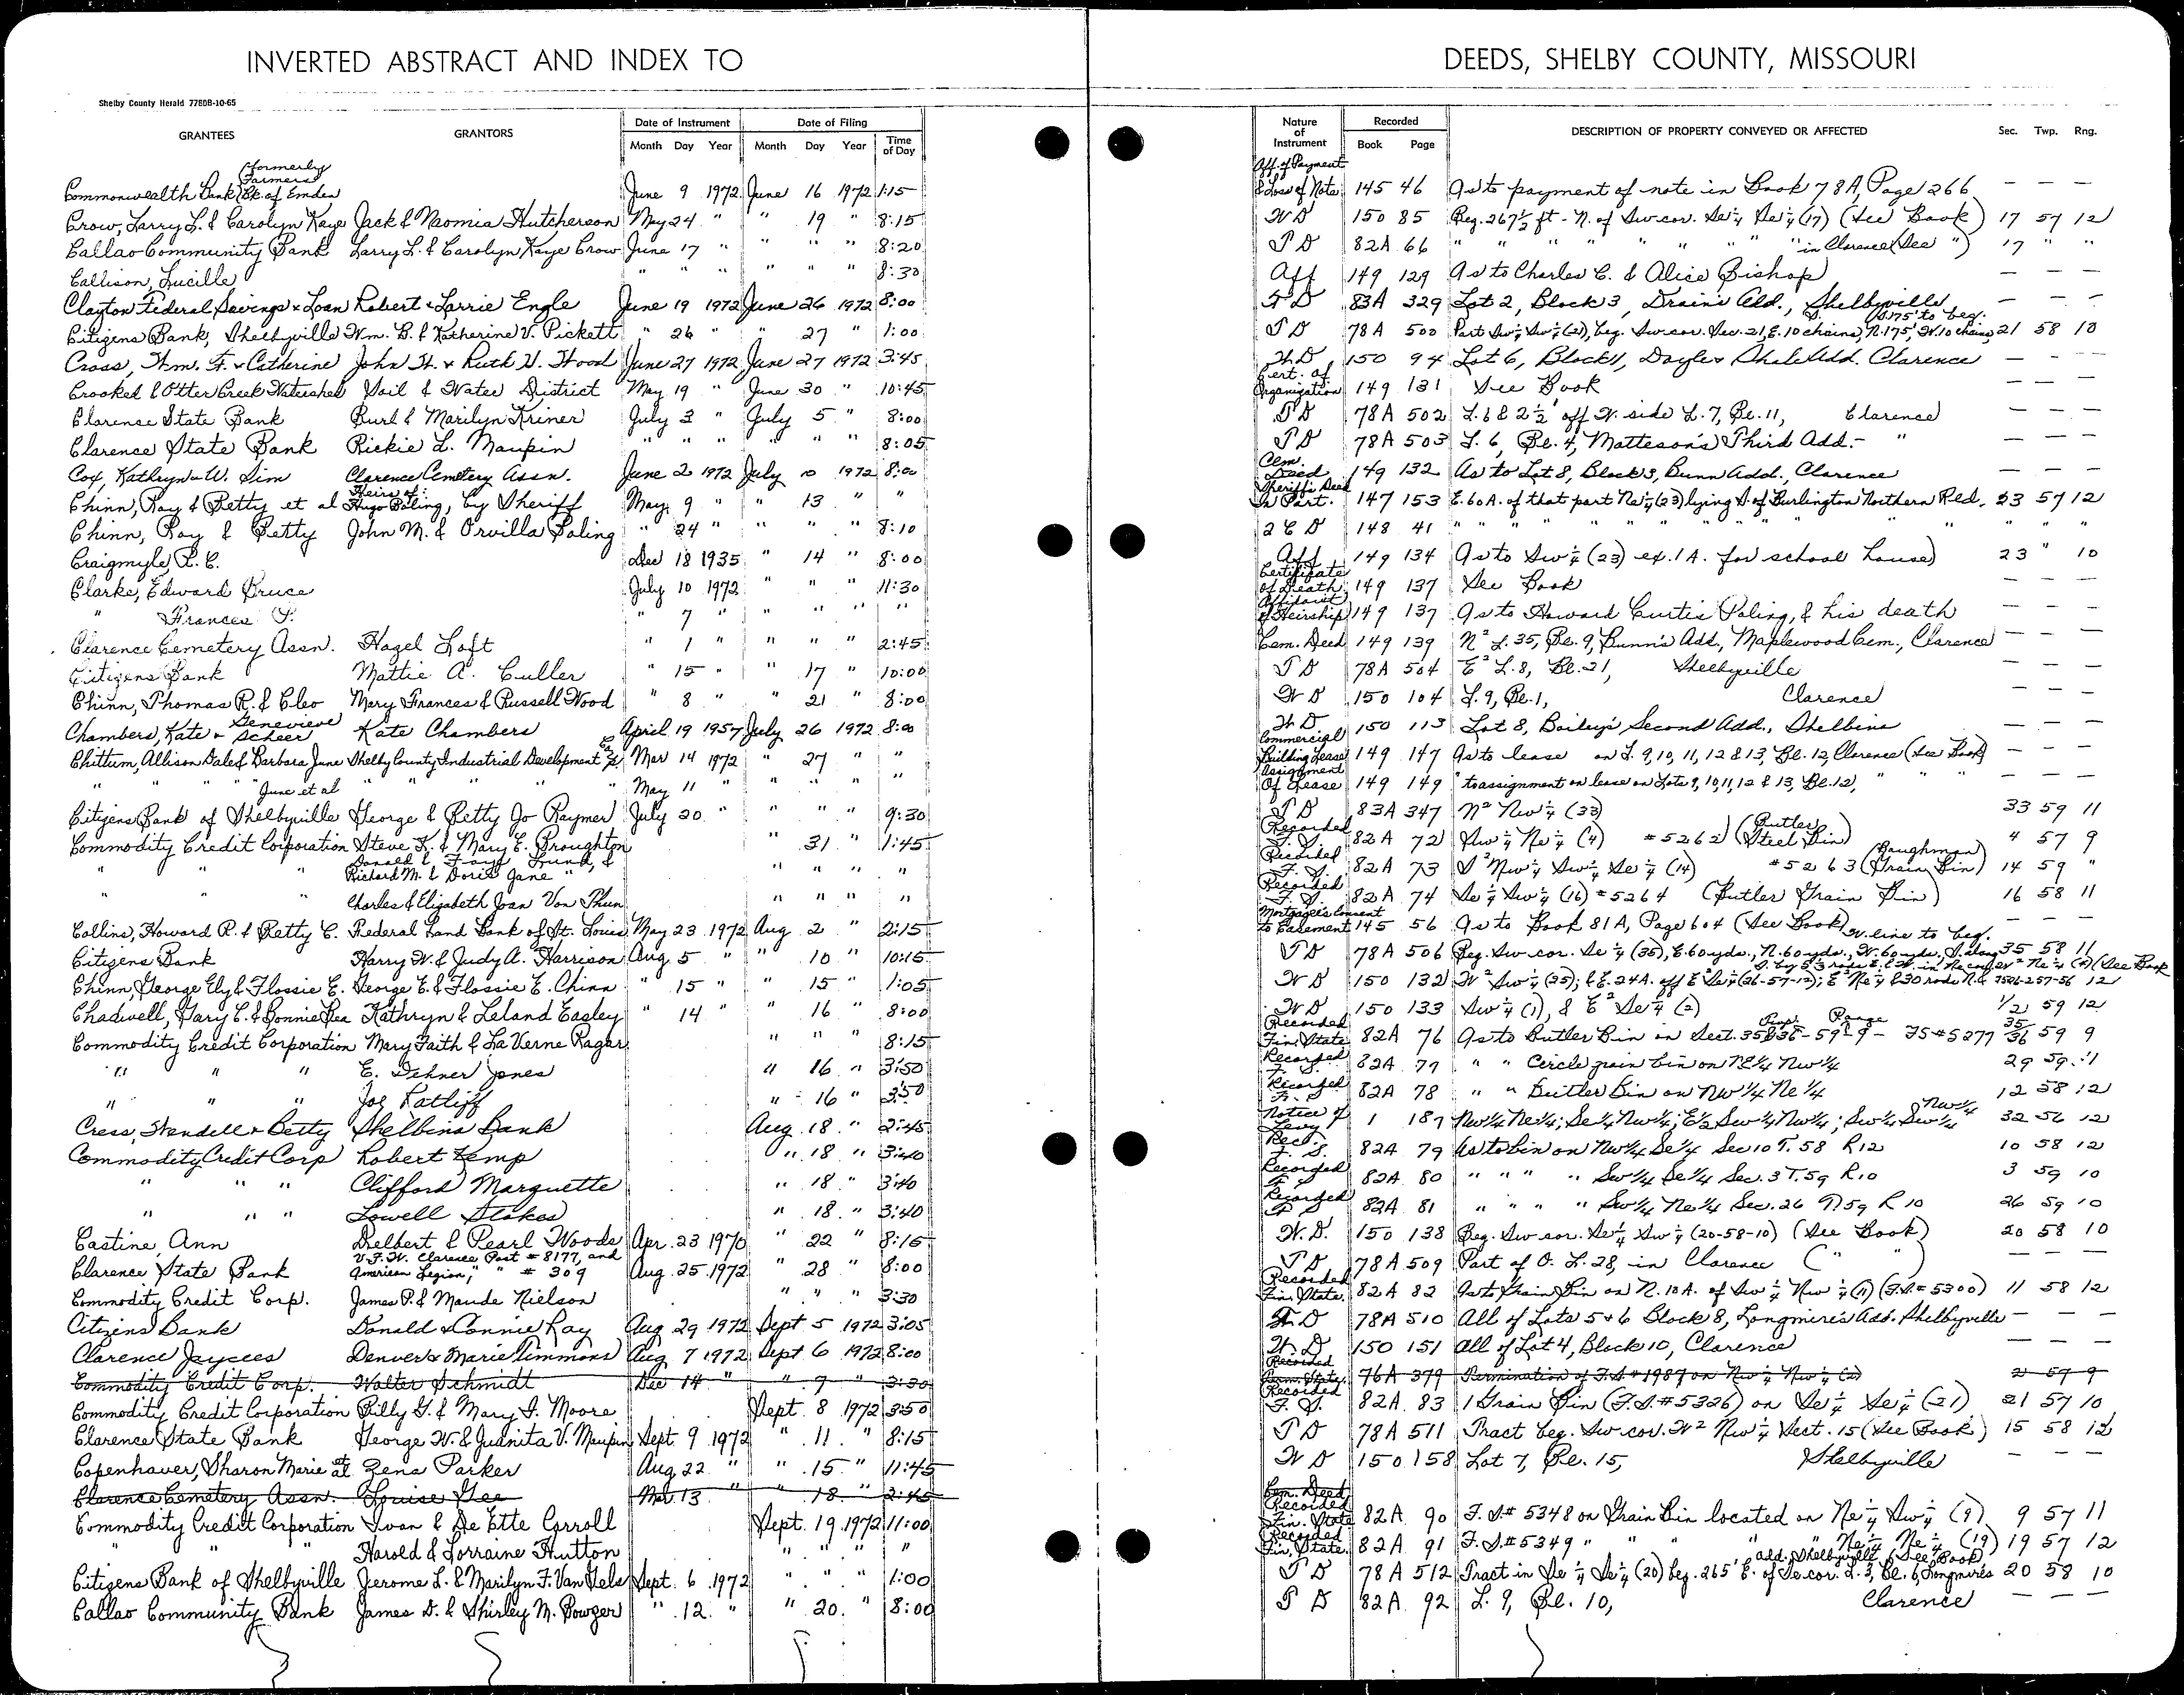 INVERTED ABSTRACT AND INDEX TO
DEEDS, SHELBY COUNTY, MISSOURI
Shelby County Herald 7780B-10-65
GRANTEES GRANTORS Date of Instrument Month Day Year Date of Filing Month Day Year Time of Day Nature of Instrument Recorded Book Page DESCRIPTION OF PROPERTY CONVEYED OR AFFECTED Sec. Twp. Rng.
Commonwealth Bank (formerly Farmers Bk. of Emden June 9 1972 June 16 1972 1:15 Aff. of Payment & Loss of Note 145 46 As to payment of note in Book 78A, Page 266 — — —
Crow, Larry L. & Carolyn Kaye Jack & Naomia Hutcherson May 24 " " 19 " 8:15 W D 150 85 Beg. 267½ ft - N. of Sw cor. Se¼ Se¼ (17) (See Book) 17 57 12
Callao Community Bank Larry L. & Carolyn Kaye Crow June 17 " " " " 8:20 T D 82A 66 " " " " " " " " in Clarence (See ") 17 " "
Callison, Lucille " " " " " " 8:30 Aff 149 129 As to Charles C. & Alice Bishop — — —
Clayton Federal Savings & Loan Robert & Lorrie Engle June 19 1972 June 26 1972 8:00 T D 83A 329 Lot 2, Block 3, Drain's Add., Shelbyville — — —
Citizens Bank, Shelbyville Wm. B. & Katherine V. Pickett " 26 " " 27 " 1:00 T D 78A 500 Part Sw¼ Sw¼ (21), beg. Sw cor. Sec. 21, E. 10 chains, N. 175', W. 10 chains, S. 175' to beg. 21 58 10
Cross, Wm. F. & Catherine John W. & Ruth V. Wood June 27 1972 June 27 1972 3:45 W D 150 94 Lot 6, Block 1, Doyle & Shale Add. Clarence — — —
Crooked & Otter Creek Watershed Soil & Water District May 19 " June 30 " 10:45 Cert. of Organization 149 131 See Book — — —
Clarence State Bank Burl & Marilyn Kriner July 3 " July 5 " 8:00 T D 78A 502 L. 6 & 2½' off W. side L. 7, Bl. 11, Clarence — — —
Clarence State Bank Rickie L. Maupin " " " " " " 8:05 T D 78A 503 L. 6, Bl. 4, Matteson's Third Add. - " — — —
Cox, Kathryn & W. Sim Clarence Cemetery Assn. June 2 1972 July 10 1972 8:00 Cem. Deed 149 132 As to Lot 8, Block 3, Bunn Add., Clarence — — —
Chinn, Roy & Betty et al Heirs of: Hugo Poling, by Sheriff May 9 " " 13 " " Sheriff's Deed In Part. 147 153 E. 60 A. of that part Ne¼ (23) lying S. of Burlington Northern Rld. 23 57 12
Chinn, Roy & Betty John M. & Orvilla Poling " 24 " " " " 8:10 2 C D 148 41 " " " " " " " " " " " "
Craigmyle, R. C. Dec 18 1935 " 14 " 8:00 Aff 149 134 As to Sw¼ (23) ex. 1 A. for school house) 23 " 10
Clarke, Edward Bruce July 10 1972 " " " 11:30 Certificate of Death 149 137 See Book — — —
" Frances P. " 7 " " " " " Affidavit of Heirship 149 137 As to Howard Curtis Poling, & his death — — —
Clarence Cemetery Assn. Hazel Loft " 1 " " " " 2:45 Cem. Deed 149 139 N² L. 35, Bl. 9, Bunn's Add., Maplewood Cem., Clarence — — —
Citizens Bank Mattie A. Culler " 15 " " 17 " 10:00 T D 78A 504 E² L. 8, Bl. 21, Shelbyville — — —
Chinn, Thomas R. & Cleo Mary Frances & Russell Wood " 8 " " 21 " 8:00 W D 150 104 L. 9, Bl. 1, Clarence — — —
Chambers, Kate & Genevieve Scheer Kate Chambers April 19 1957 July 26 1972 8:00 W D 150 113 Lot 8, Bailey's Second Add., Shelbina — — —
Chittum, Allison Dale & Barbara June Shelby County Industrial Development Co. Mar 14 1972 " 27 " " Commercial Building Lease 149 147 As to lease on L. 9, 10, 11, 12 & 13, Bl. 12, Clarence (See Book) — — —
" " " June et al " " " " May 11 " " " " " Assignment Of Lease 149 149 " to assignment on lease on Lots 9, 10, 11, 12 & 13, Bl. 12, " " — — —
Citizens Bank of Shelbyville George & Betty Jo Raymer July 20 " " " " 9:30 T D 83A 347 N² Nw¼ (33) 33 59 11
Commodity Credit Corporation Steve K. & Mary E. Broughton " 31 " 1:45 Recorded F. S. 82A 72 Sw¼ Ne¼ (4) #5262 (Butler Steel Bin) 4 57 9
" " " Donald & Faye Lund, & Richard M. & Doris Jane " " " " " Recorded F. S. 82A 73 S² Nw¼ Sw¼ Se¼ (14) #5263 (Baughman Grain Bin) 14 59 "
" " " Charles & Elizabeth Joan Von Thun " " " " Recorded F. S. 82A 74 Se¼ Sw¼ (16) #5264 (Butler Grain Bin) 16 58 11
Collins, Howard R. & Betty C. Federal Land Bank of St. Louis May 23 1972 Aug 2 " 2:15 Mortgagee's Consent to Easement 145 56 As to Book 81A, Page 604 (See Book) — — —
Citizens Bank Harry W. & Judy A. Harrison Aug 5 " " 10 " 10:15 T D 78A 506 Beg. Sw cor. Se¼ (35), E. 60 yds., N. 60 yds., W. 60 yds., S. along W. line to beg. 35 58 11
Chinn, George Ely & Flossie E. George E. & Flossie E. Chinn " 15 " " 15 " 1:05 W D 150 132 W² Sw¼ (25); & E. 24 A. off E² Se¼ (26-57-12); (See Book
Chadwell, Gary C. & Bonnie Rea Kathryn & Leland Easley " 14 " " 16 " 8:00 W D 150 133 Sw¼ (1), & E² Se¼ (2) 1/2 59 12
Commodity Credit Corporation Mary Faith & La Verne Ragar " " " 8:15 Recorded Fin. State 82A 76 As to Butler Bin on Sect. 35&36 - Twp. 59 - Range 9 - FS#5277 35 36 59 9
" " " E. Dehner Jones " 16 " 3:50 Recorded F. S. 82A 77 " " Circle grain bin on NE¼ Nw¼ 29 59 11
" " " Joe Ratliff " 16 " 3:50 Recorded F. S. 82A 78 " " Butler Bin on NW¼ Ne¼ 12 58 12
Cress, Wendell & Betty Shelbina Bank Aug. 18 " 2:45 Notice of Levy 1 187 Nw¼ Ne¼; Se¼ Nw¼; E½ Sw¼ Nw¼; Sw¼ Sw¼ Nw¼ 32 56 12
Commodity Credit Corp Robert Kemp " 18 " 3:40 Rec'd. F. S. 82A 79 As to bin on Nw¼ Se¼ Sec 10 T. 58 R 12 10 58 12
" " " Clifford Marquette " 18 " 3:40 Recorded F S 82A 80 " " " " Sw¼ Se¼ Sec. 3 T. 59 R. 10 3 59 10
" " " Lowell Stokes " 18 " 3:40 Recorded F S 82A 81 " " " " Sw¼ Ne¼ Sec. 26 T. 59 R 10 26 59 10
Castine, Ann Delbert & Pearl Woods Apr. 23 1970 " 22 " 8:15 W. D. 150 138 Beg. Sw cor. Se¼ Sw¼ (20-58-10) (See Book) 20 58 10
Clarence State Bank V.F.W. Clarence Post #8177, and American Legion, " " #309 Aug. 25 1972 " 28 " 8:00 T D 78A 509 Part of O. L. 28, in Clarence (" ") — — —
Commodity Credit Corp. James P. & Maude Nielson " " " 3:30 Recorded Fin. State. 82A 82 As to Grain Bin on N. 10 A. of Sw¼ Nw¼ (11) (F.S. #5300) 11 58 12
Citizens Bank Donald & Connie Ray Aug 29 1972 Sept 5 1972 3:05 T. D 78A 510 All of Lots 5 & 6 Block 8, Longmire's Add. Shelbyville — — —
Clarence Jaycees Denver & Marie Timmons Aug 7 1972 Sept 6 1972 8:00 W. D 150 151 All of Lot 4, Block 10, Clarence — — —
Commodity Credit Corp. Walter Schmidt Dec 14 " " 7 " 3:30 Recorded Term. State. 76A 379 Termination of F.S #1987 on Nw¼ Nw¼ (2) 2 57 9
Commodity Credit Corporation Billy G. & Mary I. Moore Sept. 8 1972 3:50 Recorded F. S. 82A 83 1 Grain Bin (F.S. #5326) on Se¼ Se¼ (21) 21 57 10
Clarence State Bank George W. & Juanita V. Maupin Sept. 9 1972 " 11 " 8:15 T D 78A 511 Tract beg. Sw cor. W² Nw¼ Sect. 15 (See Book) 15 58 12
Copenhaver, Sharon Marie et al Zena Parker Aug 22 " " 15 " 11:45 W D 150 158 Lot 7, Bl. 15, Shelbyville — — —
Clarence Cemetery Assn. Louise Gee Mar. 13 " " 18 " 2:45 Cem. Deed
Commodity Credit Corporation Ivan & De Ette Carroll Sept. 19 1972 11:00 Recorded Fin. State 82A 90 F. S# 5348 on Grain Bin located on Ne¼ Sw¼ (9) 9 57 11
" " " Harold & Lorraine Hutton " " " " Recorded Fin. State. 82A 91 F. S.# 5349 " " " " Ne¼ Ne¼ (19) 19 57 12
Citizens Bank of Shelbyville Jerome L. & Marilyn F. Van Gels Sept. 6 1972 " " " 1:00 T D 78A 512 Tract in Se¼ Se¼ (20) beg. 265' E. of Se cor. L. 3, Bl. 6, Longmires add. Shelbyville (See Book) 20 58 10
Callao Community Bank James D. & Shirley M. Bowger " 12 " " 20 " 8:00 T D 82A 92 L. 9, Bl. 10, Clarence — — —